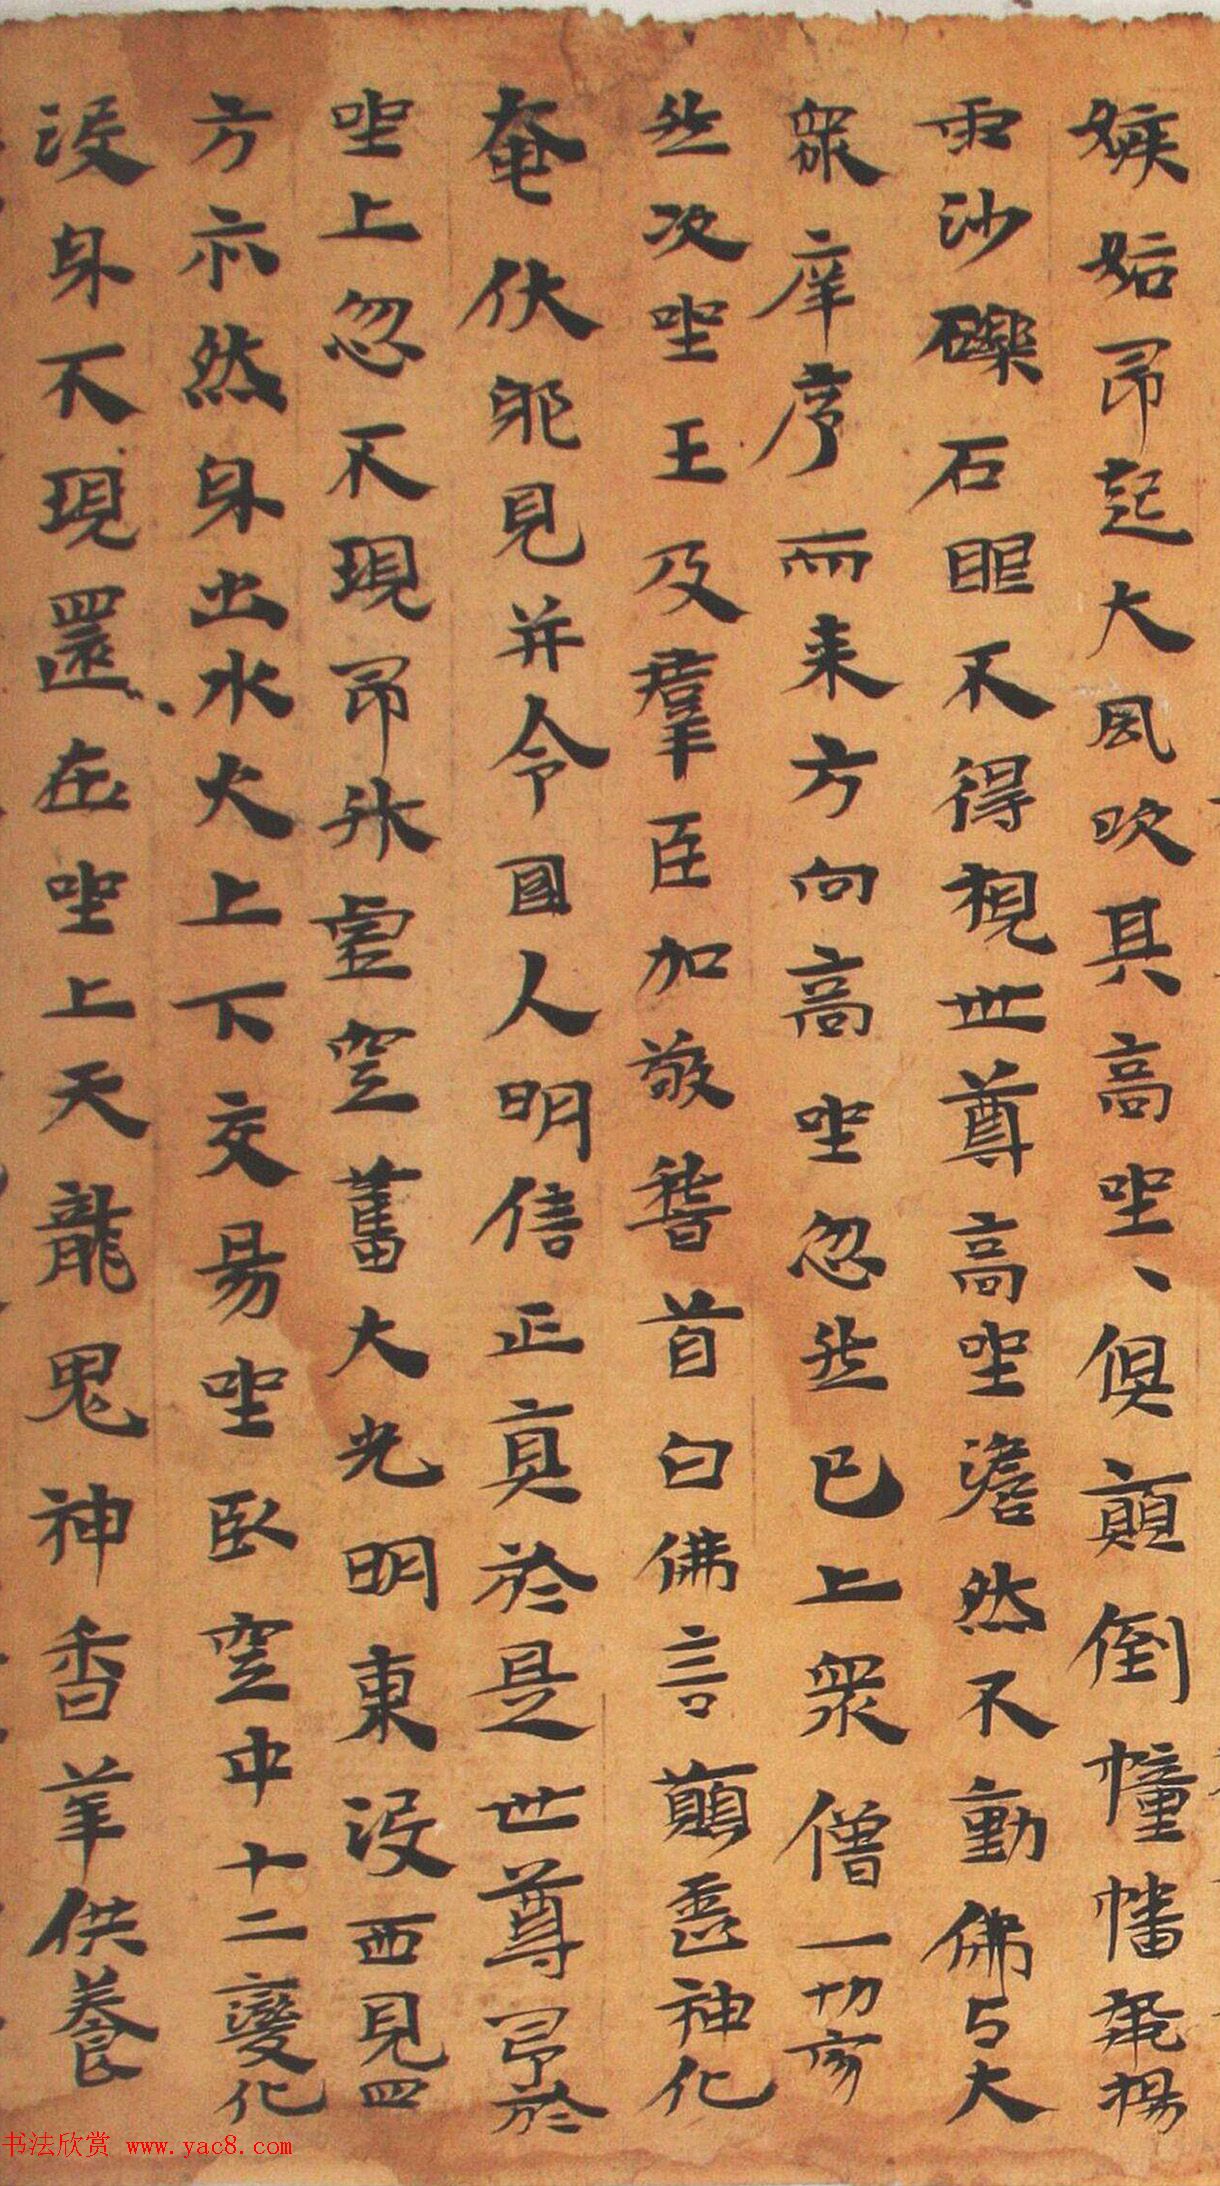 嫉妬即起大風吹其高坐、俱顛倒幢幡飛揚
雨沙礫石眼不得視世尊高坐澹然不動佛与大
衆庠序而来方向高坐忽然已上衆僧一切亦
然次坐王及羣臣加敬稽首白佛言願垂神化
奄伏邪見并令國人明信正真於是世尊即於
坐上忽不現即升虚空奮大光明東没西見四
方亦然身出水火上下交易坐卧空中十二變化
没身不現還在坐上天龍鬼神香華供養
书法欣赏 www.yac8.com